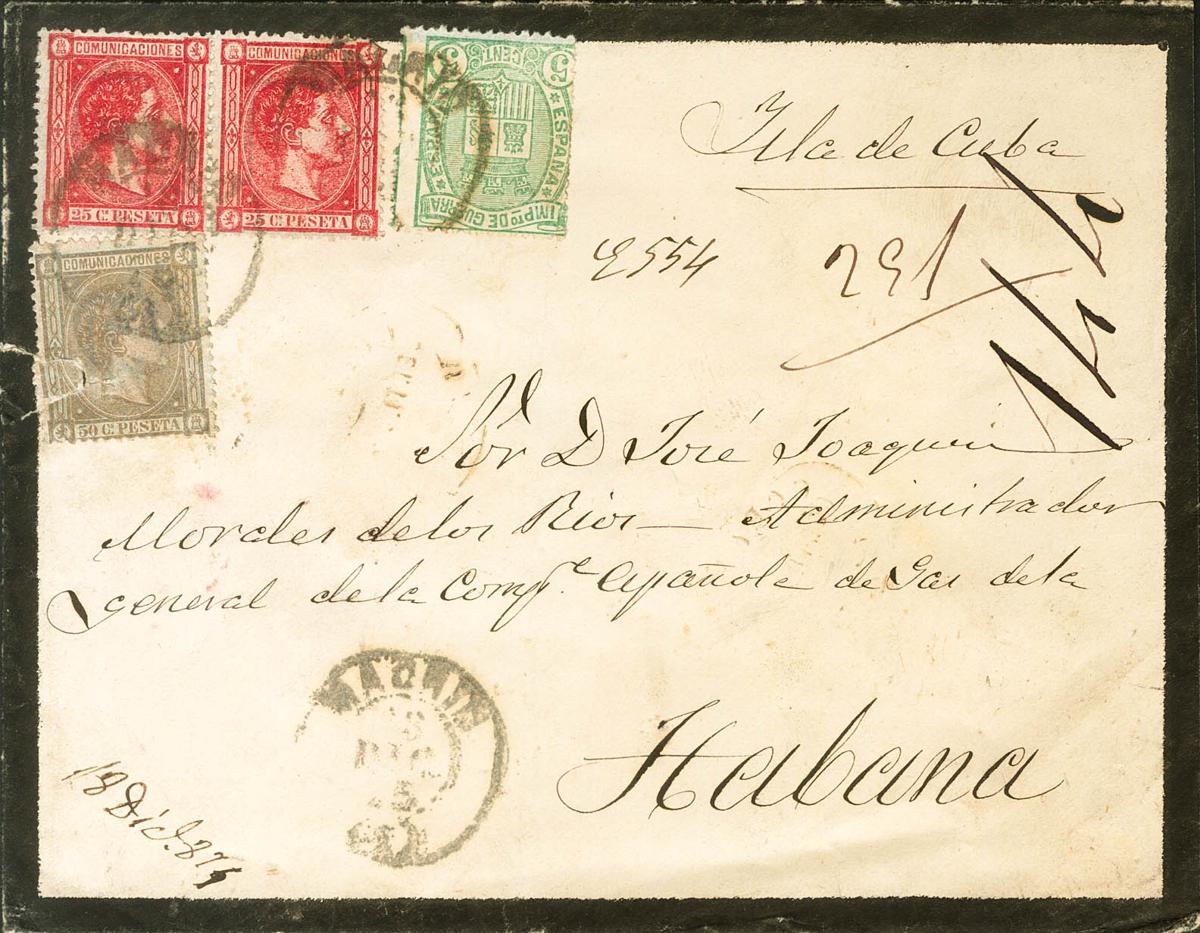 COMUNICACIONES
25 C. PESETA
COMUNICACIONES
25 C. PESETA
5 CENT. 5
ESPAÑA
IMPTO DE GUERRA
COMUNICACIONES
50 C. PESETA
Isla de Cuba
2554
291
Sór D José Joaquin
Morales de los Rios Administrador
general de la Compª Española de Gas de la
Habana
MADRID
DIC
18 Dic. 875